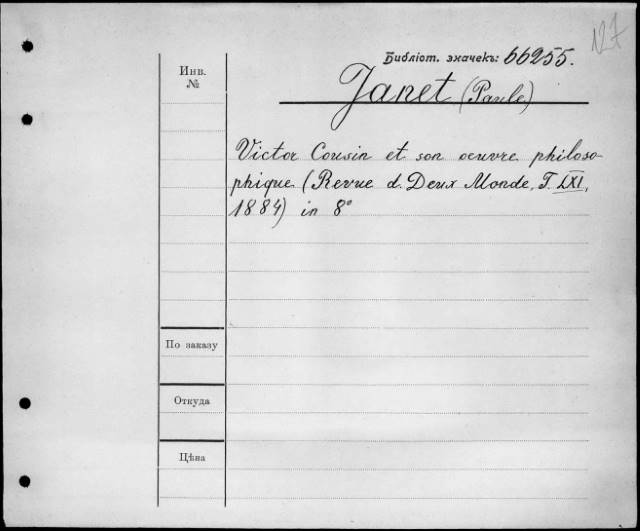 127
Библіот. значекъ: 66255.
Инв.
№
Janet (Paule)
Victor Cousin et son oeuvre philoso-
phique (Revue d. Deux Monde, T. LXI,
1884) in 8°
По заказу
Откуда
Цѣна